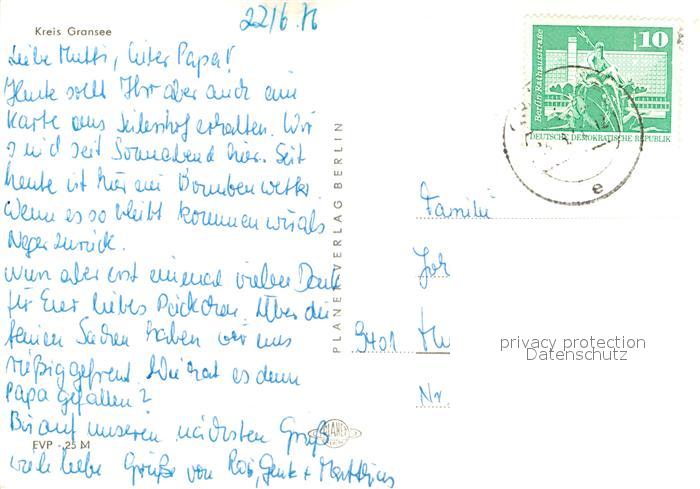 Kreis Gransee
22/6.76
Liebe Mutti, lieber Papa!
Heute sollt Ihr aber auch eine
Karte aus Seilershof erhalten. Wir
sind seit Sonnabend hier. Seit
heute ist hier ein Bombenwetter.
Wenn es so bleibt kommen wir als
Neger zurück.
Nun aber erst einmal vielen Dank
für Euer liebes Päckchen. Über die
feinen Sachen haben wir uns
rießig gefreut. Wie hat es denn
Papa gefallen?
Bis auf unseren nächsten Gruß
viele liebe Grüße von + Matthias
EVP -,25 M
PLANET-VERLAG BERLIN
PLANET
10
Berlin Rathausstraße
DEUTSCHE DEMOKRATISCHE REPUBLIK
e
Familie
9401
Nr.
privacy protection
Datenschutz